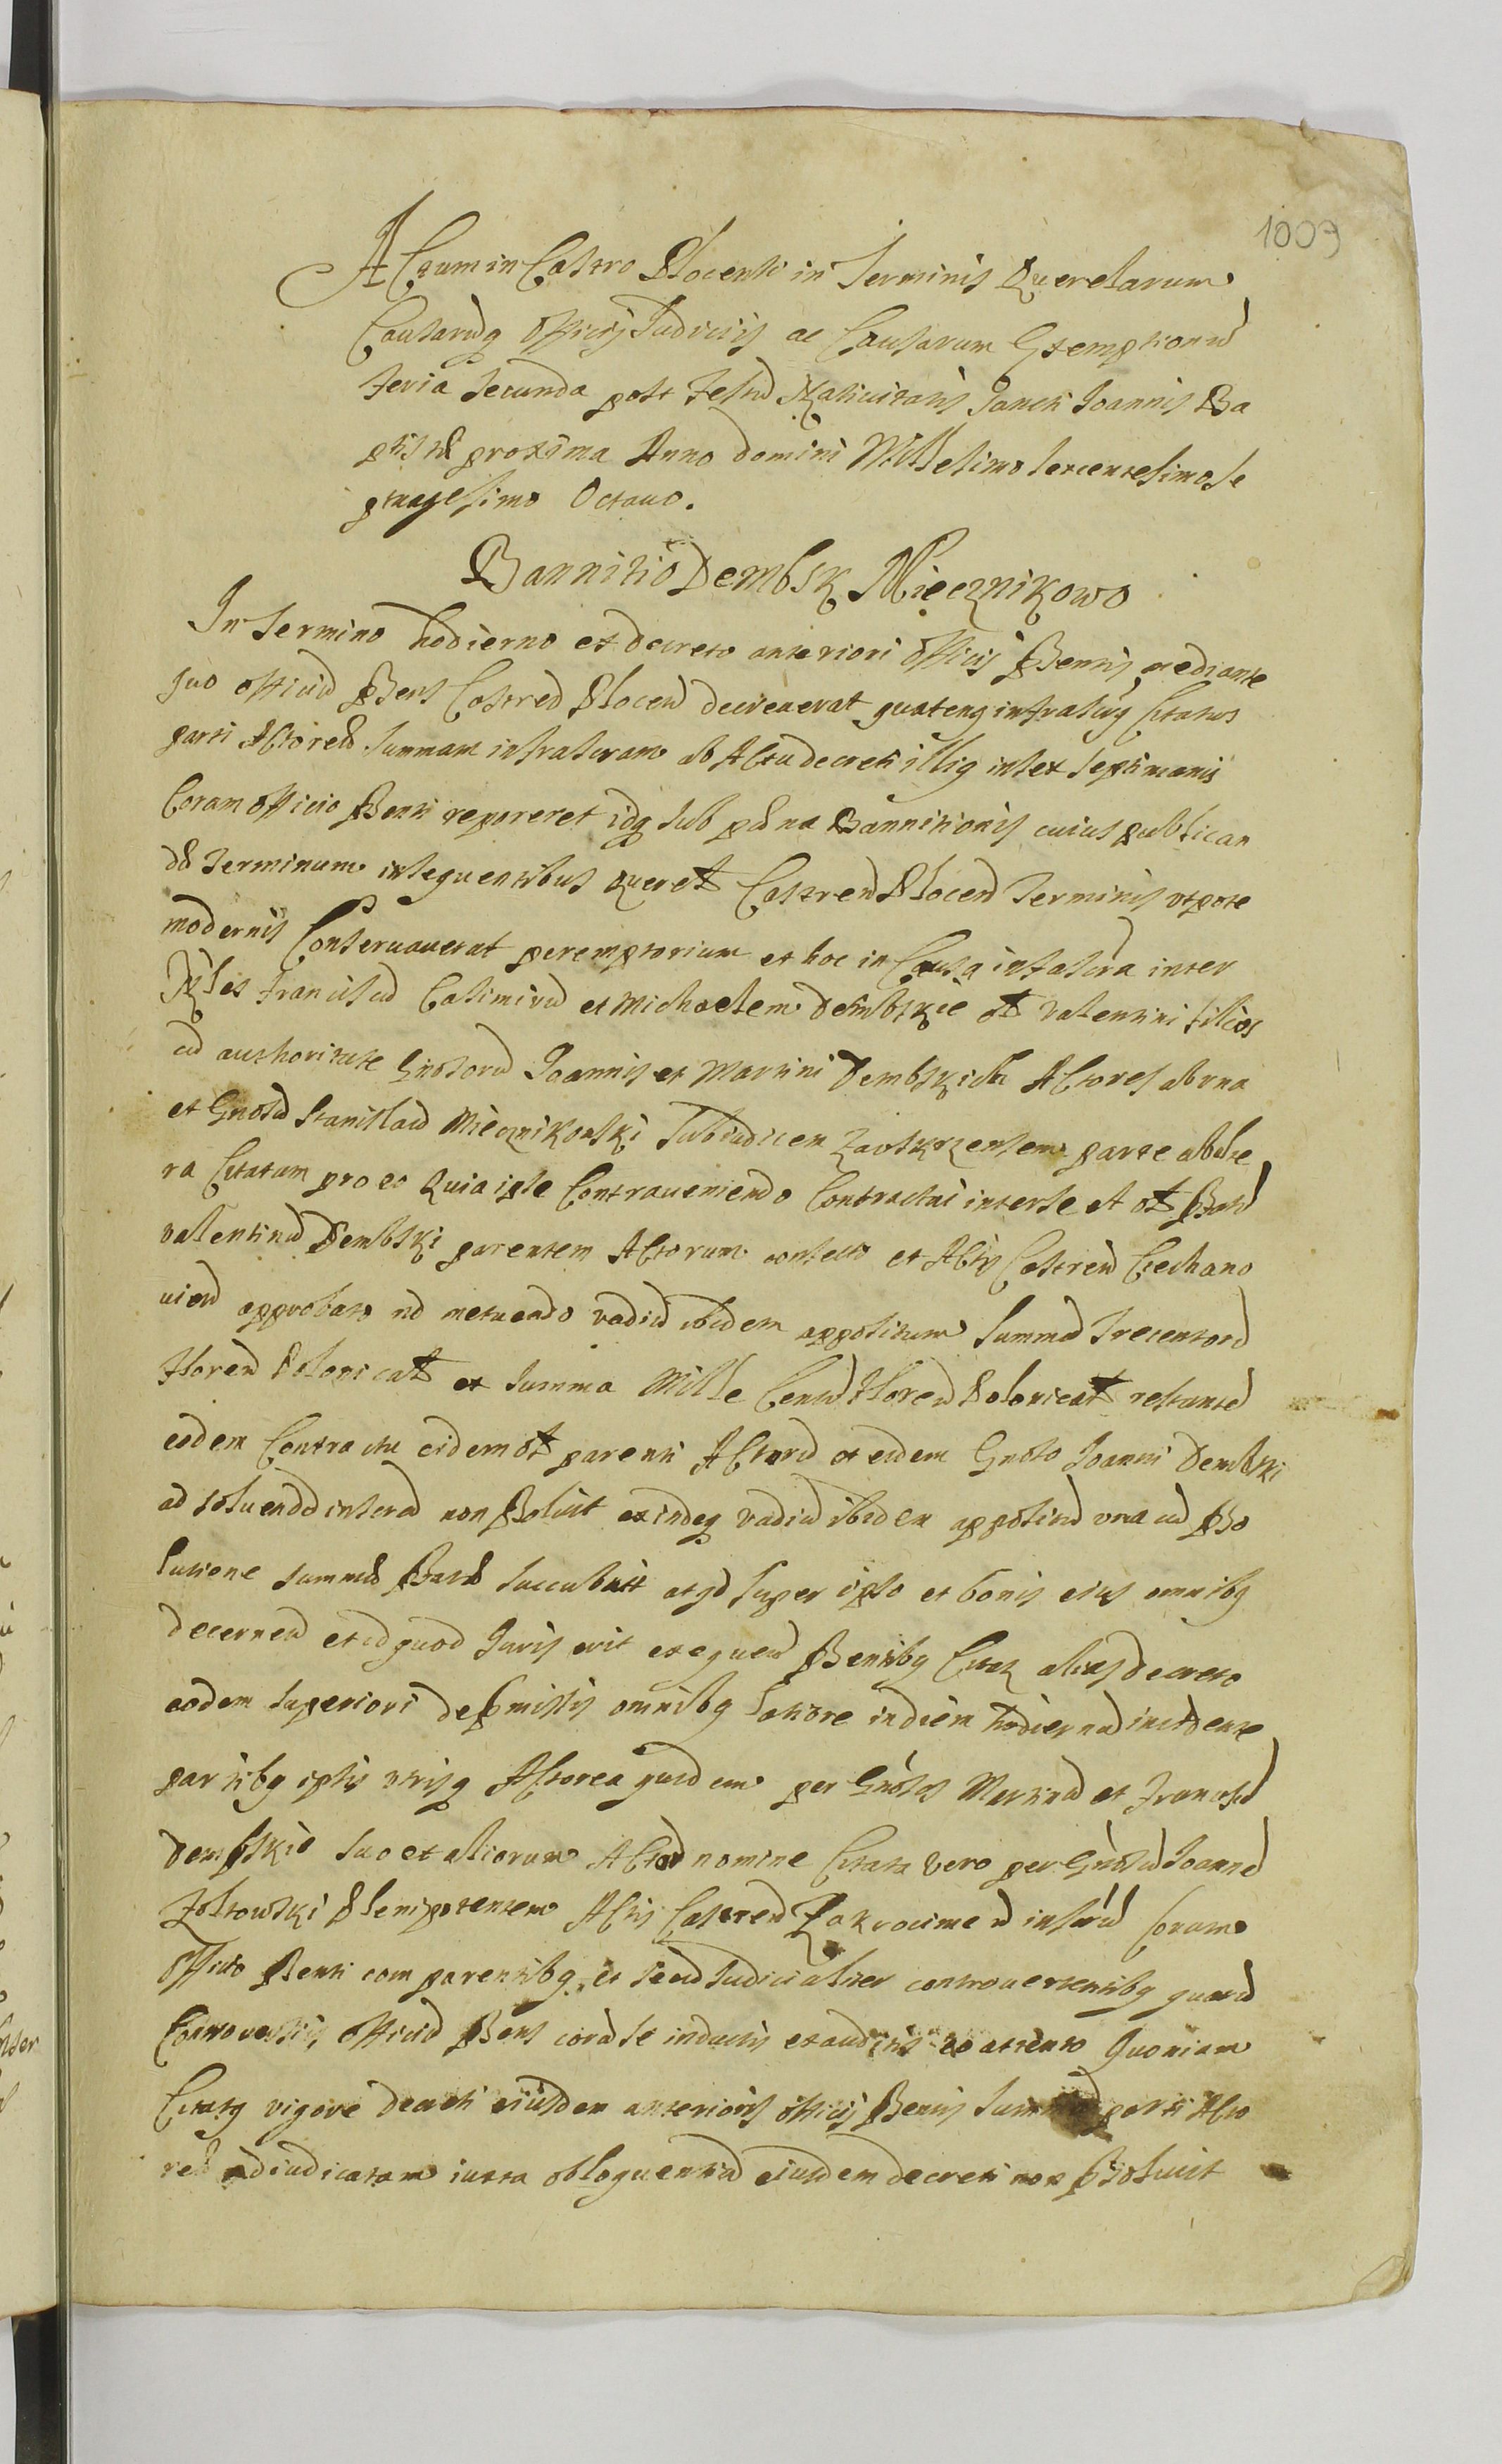 1009
ACtum in Castro Plocensi in Terminis Querelarum
Causarūq officij Judicijs ac Causarum Exemptionū
feria Secunda post Festū Natiuitatis Sancti Joannis Ba
ptistæ proxima Anno Domini Millesimo Sexcentesimo Se
ptuagesimo Octauo.
Bannitio Dembsk Miecznikowo
In Termino hodierno ex decreto anteriori officij Pñtis mediante
quo officiū Pñs Castreñ Ploceñ decreuerat quatenq infrascrq Citatus
parti Actoreæ summam infrascram ab Actu decreti illiq in sex septimanis
Coram officio Pñti reponeret idq sub pæna Bannitionis cuius publican
dæ Terminum in sequentibus querel Castreñ Ploceñ Terminis utpote
modernis Conseruauerat peremptorium et hoc in Causa infrascra inter
Nbles Franciscū Casimirū et Michaelem Dembskie olt Valentini filios
cū authoritate Gñosorū Joannis et Martini Dembskich Actores ab vna
et Gñosū Stanislaū Miecznikowski Subiudicem Zawskrzensem parte ab alte
ra Citatum pro eo Quia ipse Contraueniendo Contractui inter se et olt Pfatū
Valentinū Dembski parentem Actorum confecto et Actis Castreñ Ciechano
uieñ approbato nō metuendo vadiū ibidem appositum Summā Trecentorū
Floreñ Polonicał ex Summa Mille Centū Floreñ Polonicał restantem
eodem Contractu eidem olt parenti Actorū et eidem Gñoso Joanni Dembski
ad soluendū inscrā non Psoluit exindeq vadiū ibidem appositū vna cū Pso
lutione summæ Pfatæ succubuit atq super ipso et bonis eius omnibq
decerneñ et id quod Juris erit exequeñ Pñtibq Citaʒ alias decreto
eodem superiori dePmissis omnibq latiore in diem hodiernū incidente
partibq ipsis vtrisq Actorea quidem per Gñosos Martinū et Franciscū
Dembskie suo et aliorum Actorū nomine Citata vero per Gñosū Joannē
Zoltowski Plenipotentem Actis Castreñ Zakrocimeñ inscrū Coram
officio Pñti comparentibq et sctū Judicialiter controuertentibq quarū
Controuersijs officiū Pñs corā se inductis exauditis eo attento Quoniam
Citatq vigore decreti eiusdem anterioris officij Pñtis Summā parti Acto
reæ adiudicatam iuxta obloquentiā eiusdem decreti non Psoluit